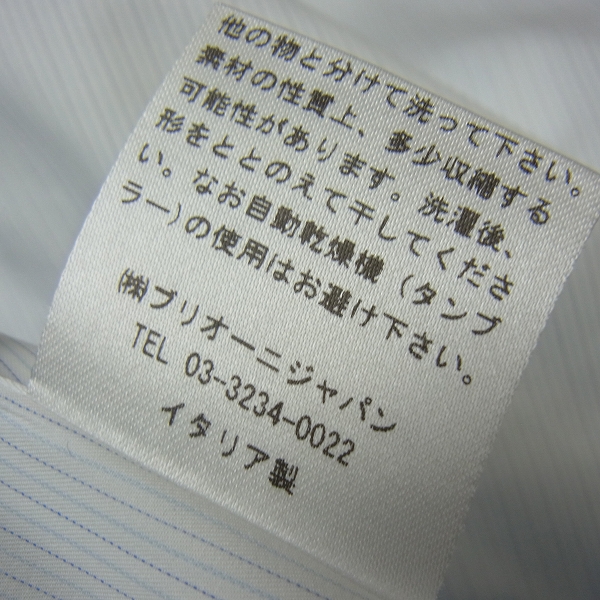 他の物と分けて洗って下さい。
素材の性質上、多少収縮する
可能性があります。洗濯後、
形をととのえて干してくださ
い。なお自動乾燥機（タンブ
ラー）の使用はお避け下さい。
㈱ブリオーニジャパン
TEL 03-3234-0022
イタリア製